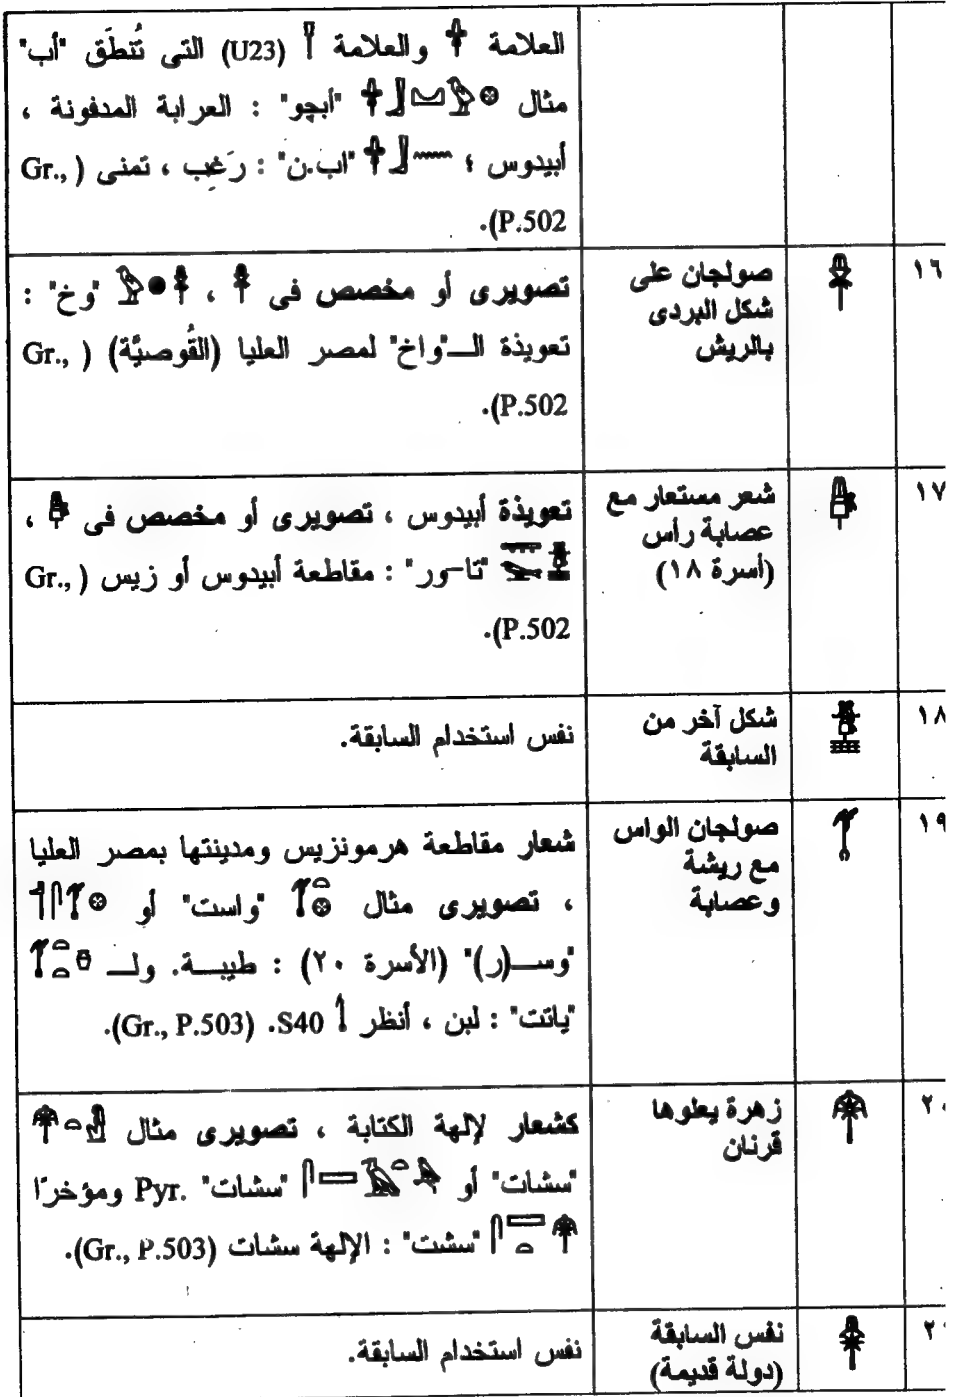 العلامة 𓋋 والعلامة 𓍋 (U23) التى تُنطَق "أب"
مثال "أبچو" : العرابة المدفونة ،
أبيدوس ؛ "اب.ن" : رَغِب ، تمنى (Gr.,
P.502).
١٦
صولجان على
شكل البردى
بالريش
تصويرى أو مخصص فى ، "وخ" :
تعويذة الـ"واخ" لمصر العليا (القُوصيَّة) (Gr.,
P.502).
١٧
شعر مستعار مع
عصابة رأس
(أسرة ١٨)
تعويذة أبيدوس ، تصويرى أو مخصص فى ،
"تا-ور" : مقاطعة أبيدوس أو زيس (Gr.,
P.502).
١٨
شكل آخر من
السابقة
نفس استخدام السابقة.
١٩
صولجان الواس
مع ريشة
وعصابة
شعار مقاطعة هرمونزيس ومدينتها بمصر العليا
، تصويرى مثال "واست" أو
"وســ(ر)" (الأسرة ٢٠) : طيبــة. ولــ
"ياتت" : لبن ، أنظر S40. (Gr., P.503).
٢٠
زهرة يعلوها
قرنان
كشعار لإلهة الكتابة ، تصويرى مثال
"سشات" أو "سشات" Pyr. ومؤخرًا
"سشت" : الإلهة سشات (Gr., P.503).
نفس السابقة
(دولة قديمة)
نفس استخدام السابقة.